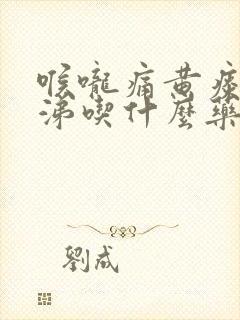 喉嚨痛黃痰
涕喫什麼藥
劉成